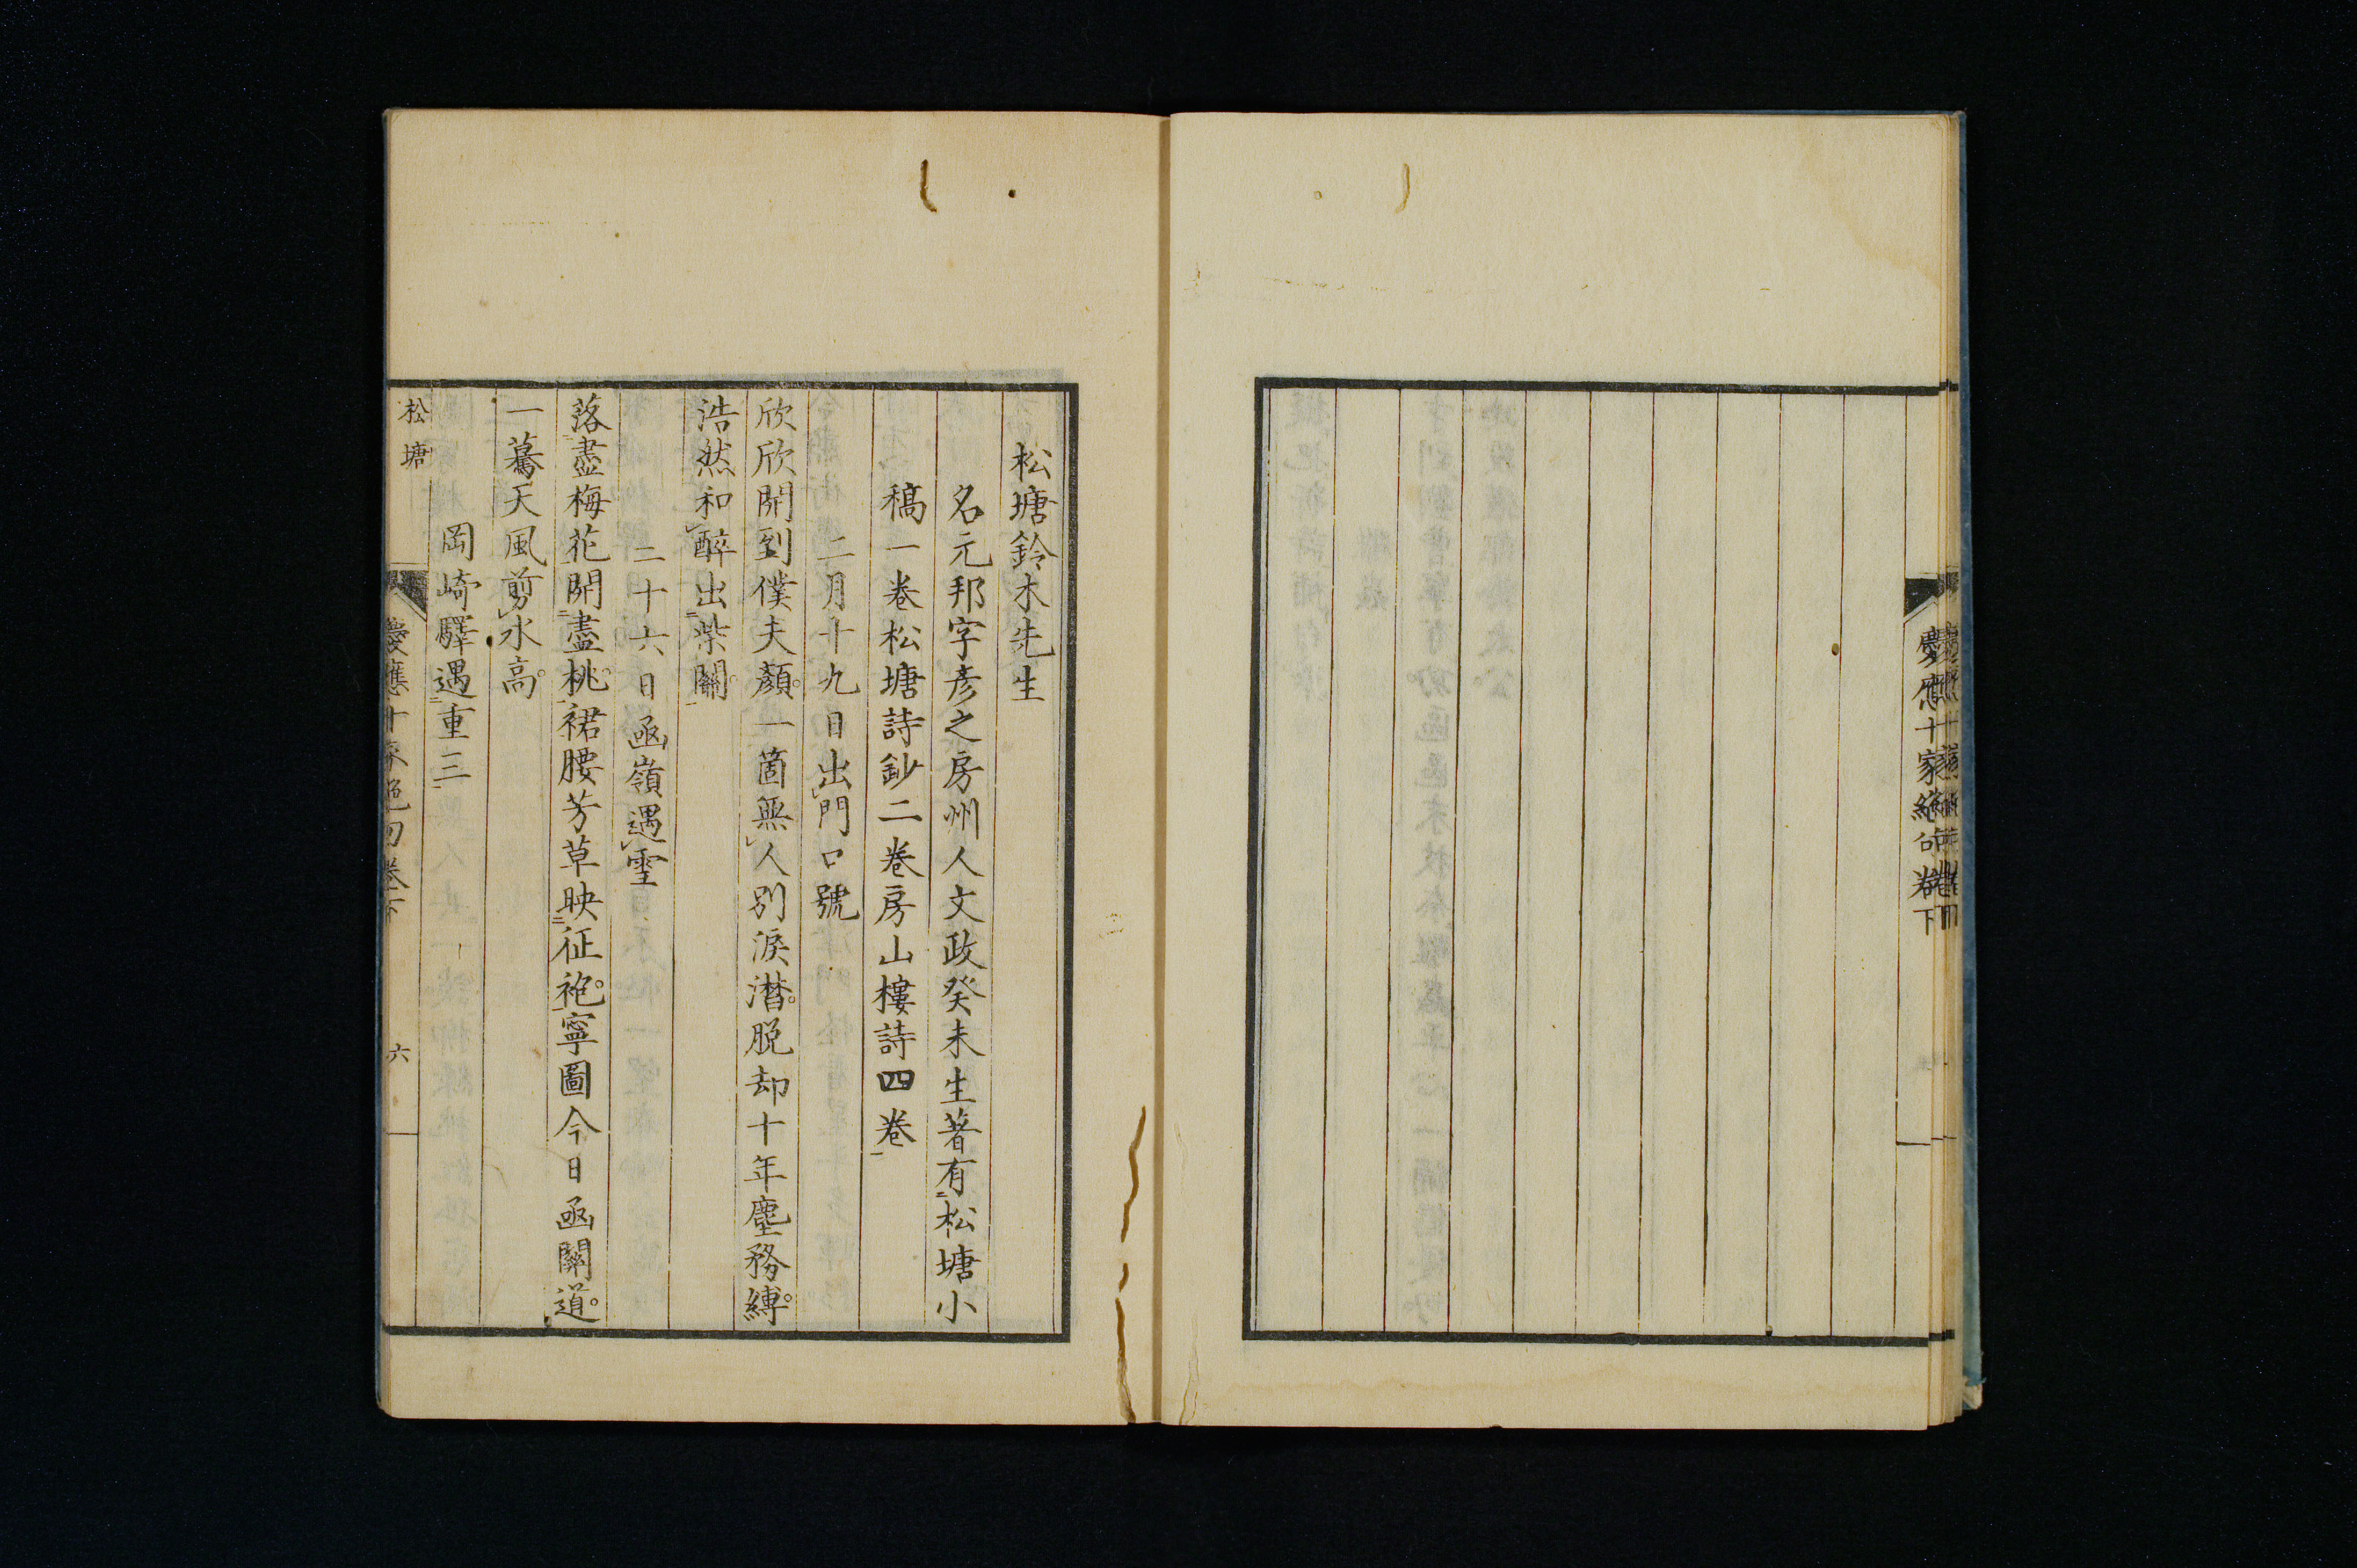 慶應十家絶句卷下
松塘鈴木先生
名元邦字彦之房州人文政癸未生著有松塘小
稿一卷松塘詩鈔二卷房山樓詩四卷
二月十九日出門口號
欣欣開到僕夫顏一箇無人別淚潸脱却十年塵務縛
浩然和醉出柴關
二十六日函嶺遇雪
落盡梅花開盡桃裙腰芳草映征袍寧圖今日函關道
一驀天風剪水高
岡崎驛遇重三
松塘
慶應十家絶句卷下
六